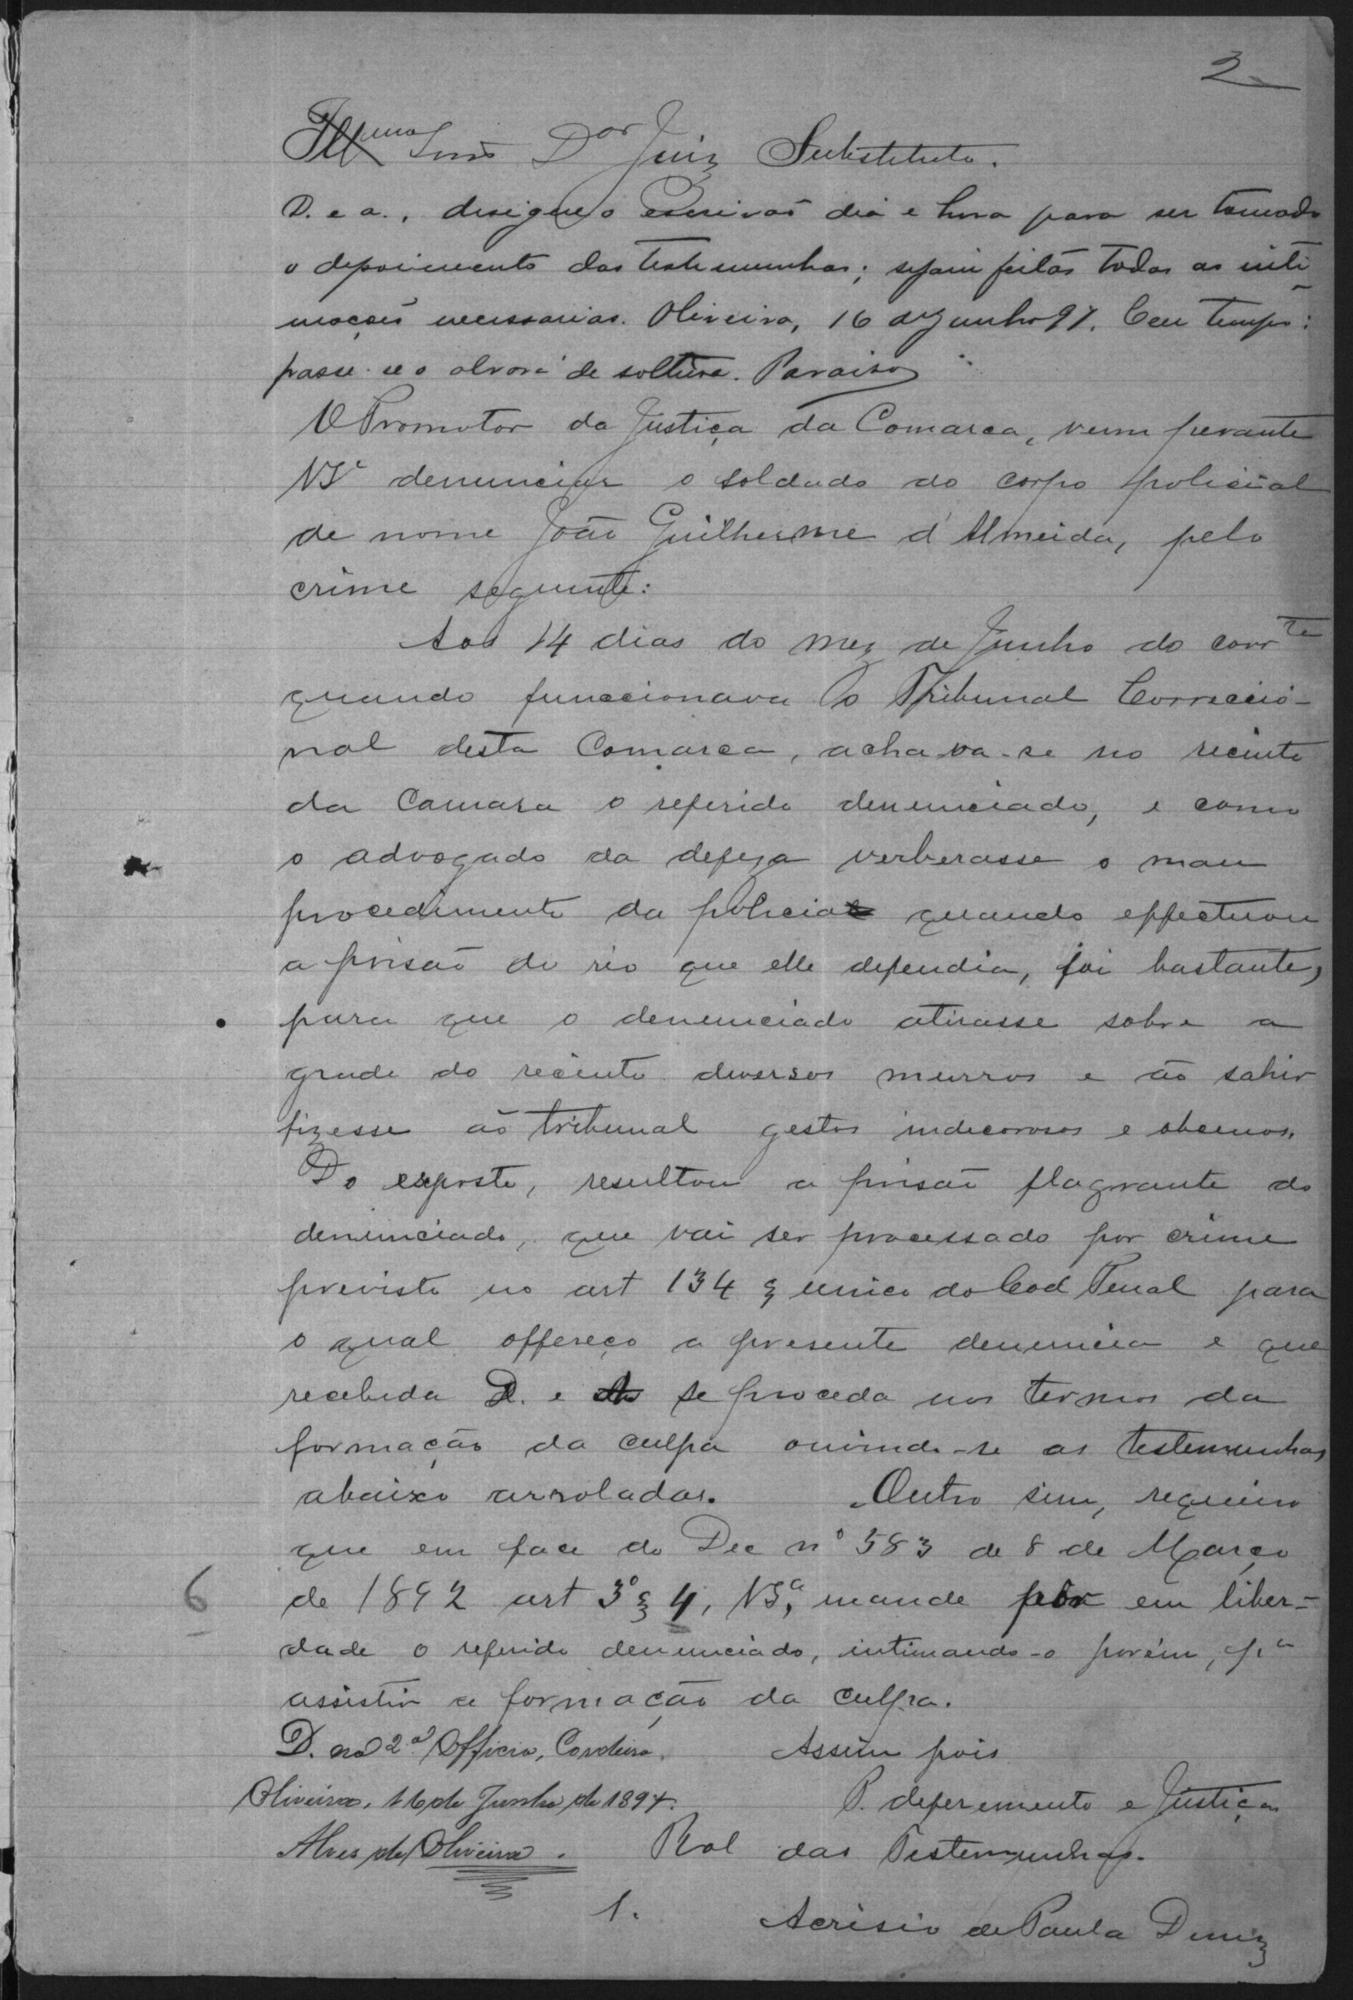 2
Illmo Snr Dor Juiz Substituto.
D. e a., designe o Escrivão dia e hora para ser tomado
o depoimento das testemunhas; sejam feitas todas as inti-
mações necessarias. Oliveira, 16 de Junho 97. Em tempo:
passe-se o alvará de soltura. Paraiso
O Promotor da Justiça da Comarca, vem perante
VSª denunciar o soldado do corpo policial
de nome João Guilherme d'Almeida, pelo
crime seguinte:
Aos 14 dias do mez de Junho do corrte
quando funccionava o Tribunal Correccio-
nal desta Comarca, achava-se no recinto
da Camara o referido denunciado, e como
o advogado da defeza verberasse o mau
procedimento da policia quando effectuou
a prisão do réo que elle defendia, foi bastante,
para que o denunciado atirasse sobre a
grade do recinto diversos murros e ao sahir
fizesse ao tribunal gestos indecorosos e obcenos.
Do exposto, resultou a prisão flagrante do
denunciado, que vai ser processado por crime
previsto no art 134 § unico do Cod Penal para
o qual offereço a presente denuncia e que
recebida D. e A se proceda nos termos da
formação da culpa ouvindo-se as testemunhas
abaixo arroladas. Outro sim, requeiro
que em face do Dec nº 583 de 8 de Março
de 1892 art 3º § 4, VSª, mande pôr em liber-
6
dade o referido denunciado, intimando-o porém, pª
assistir a formação da culpa.
D. ao 2º Officio, Cordeiro. Assim pois
Oliveira, 16 de Junho de 1897. P. deferemento e Justiça
Alves de Oliveira. Rol das Testemunhas.
1. Acrisio de Paula Diniz